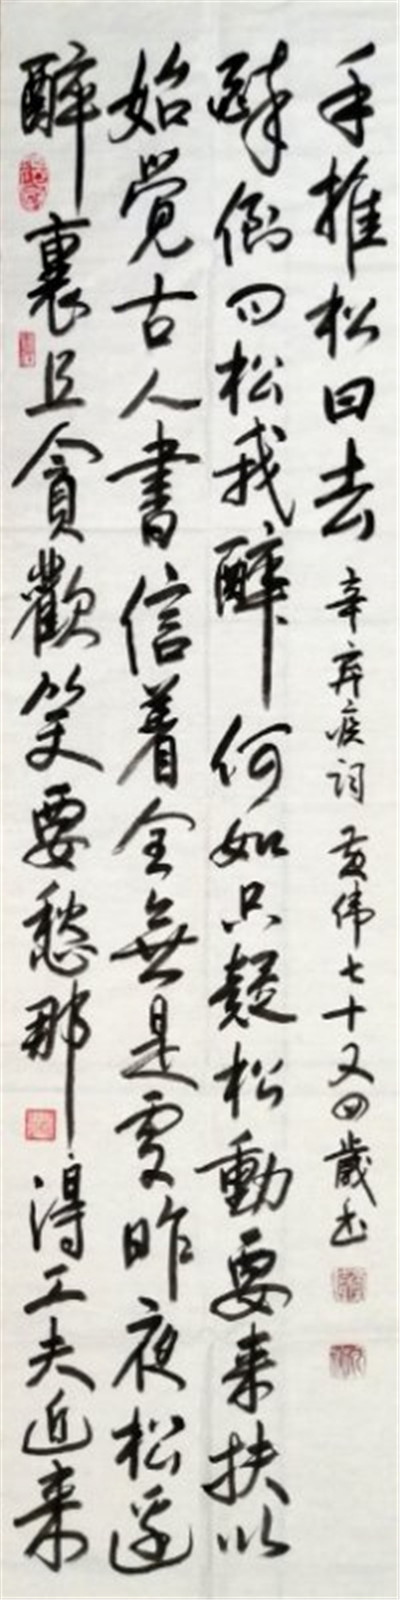 醉裏且貪歡笑要愁那得工夫近來
始覺古人書信着全無是處昨夜松邊
醉倒问松我醉何如只疑松動要来扶以
手推松曰去
辛弃疾詞 黄伟七十又四歲书